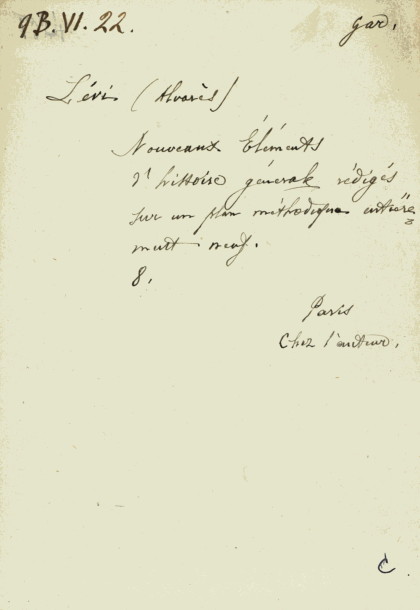 9B.VI.22. gar.
Lévi (Alvarès)
Nouveaux Éléments
d'histoire générale rédigés
sur un plan méthodique entière
ment neuf.
8.
Paris
Chez l'auteur.
C.